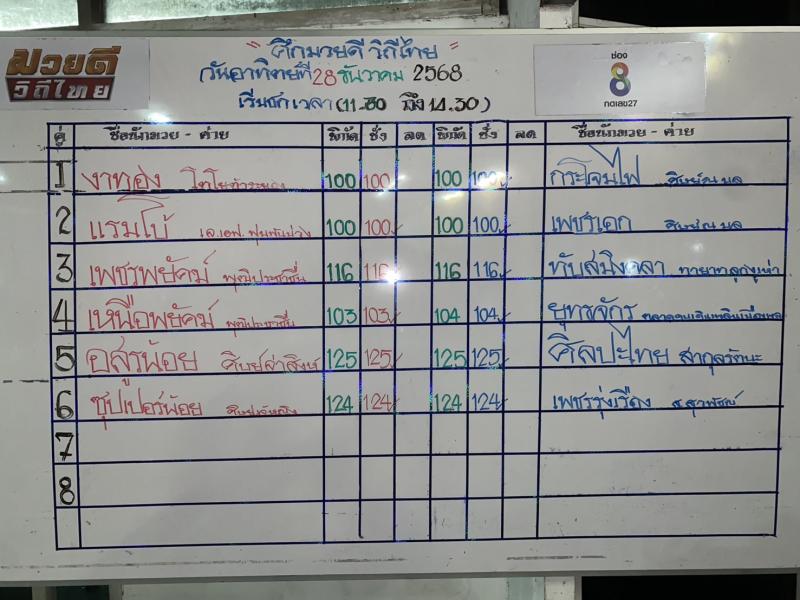 มวยดี
วิถีไทย
" ศึกมวยดี วิถีไทย "
วันอาทิตย์ที่ 28 ธันวาคม 2568
เริ่มชกเวลา (11.30 ถึง 14.30)
ช่อง
8
กดเลข27
คู่ ชื่อนักมวย - ค่าย พิกัด ชั่ง ลด พิกัด ชั่ง ลด ชื่อนักมวย - ค่าย
1 งาทอง 100 100 100 100 กระโจมไฟ ศิษย์ณมล
2 แรมโบ้ 100 100 100 100 เพชรเอก ศิษย์ณมล
3 เพชรพยัคฆ์ พุฒิประชาชื่น 116 116 116 116 ทับสมิงคลา ทายาทลูกงูเห่า
4 เหนือพยัคฆ์ พุฒิประชาชื่น 103 103 104 104 ยุทธจักร
5 อสูรน้อย ศิษย์ล่าสิงห์ 125 125 125 125 ศิลปะไทย สากุลรัตนะ
6 ซุปเปอร์น้อย 124 124 124 124 เพชรรุ่งเรือง
7
8